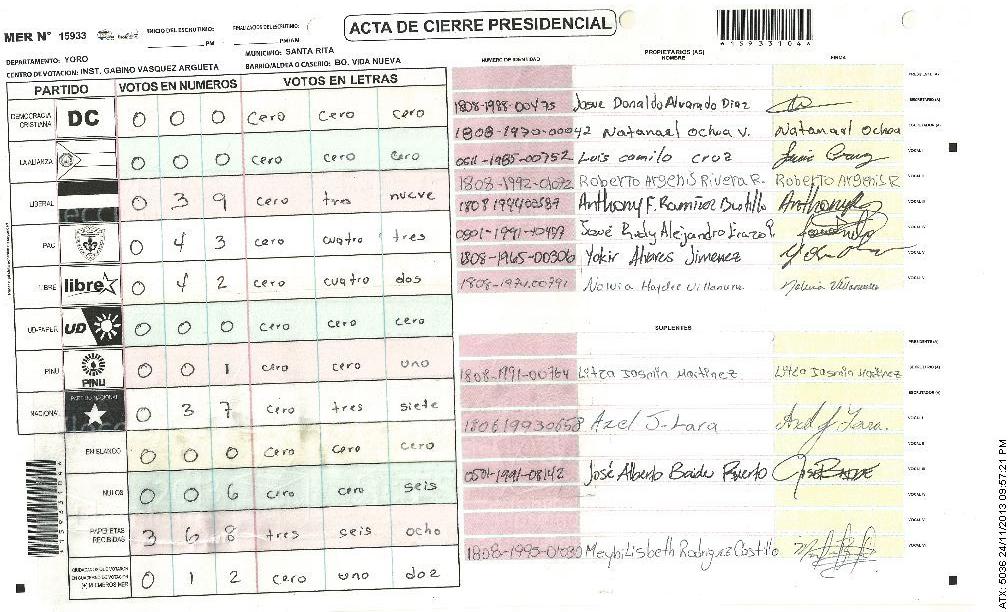 ACTA DE CIERRE PRESIDENCIAL
MER N° 15933
INICIO DEL ESCRUTINIO: PM
FINALIZACION DEL ESCRUTINIO: PM/AM
4159331044
DEPARTAMENTO: YORO
MUNICIPIO: SANTA RITA
CENTRO DE VOTACION: INST. GABINO VASQUEZ ARGUETA
BARRIO/ALDEA O CASERIO: BO. VIDA NUEVA
PARTIDO VOTOS EN NUMEROS VOTOS EN LETRAS
DEMOCRACIA CRISTIANA DC 0 0 0 cero cero cero
LA ALIANZA 0 0 0 cero cero cero
LIBERAL 0 3 9 cero tres nueve
PAC 0 4 3 cero cuatro tres
LIBRE libre 0 4 2 cero cuatro dos
UD-FAPER UD 0 0 0 cero cero cero
PINU PINU 0 0 1 cero cero uno
NACIONAL PARTIDO NACIONAL 0 3 7 cero tres siete
EN BLANCO 0 0 0 cero cero cero
NULOS 0 0 6 cero cero seis
PAPELETAS RECIBIDAS 3 6 8 tres seis ocho
CIUDADANOS QUE VOTARON EN CUADERNO DE VOTACION (+) MIEMBROS MER 0 1 2 cero uno doz
NUMERO DE IDENTIDAD PROPIETARIOS (AS) NOMBRE FIRMA
PRESIDENTE (A)
1808-1988-00475 Josue Donaldo Alvarado Diaz SECRETARIO (A)
1808-1970-00042 Natanael ochoa v. Natanael ochoa ESCRUTADOR (A)
0511-1985-00752 Luis camilo cruz VOCAL I
1808-1992-01072 Roberto Argenis Rivera R. Roberto Argenis R
1808 1994 00589 Anthony F. Ramirez Bustillo
José Rudy Alejandro Erazo
1808-1965-00306 Yokir Alvares Jimenez
1808-1974-00791
SUPLENTES
PRESIDENTE (A)
1808-1991-00764 Litza Jasmin Martinez Litza Jasmin Martinez SECRETARIO (A)
ESCRUTADOR (A)
180619930658 Axel J. Lara Axel J. Lara. VOCAL I
0501-1991-08142 José Alberto Baide Puerto
1808-1995-01030 Meyhi Lisbeth Rodriguez Castillo
4159331044
ATX: 5036 24/11/2013 09:57:21 PM